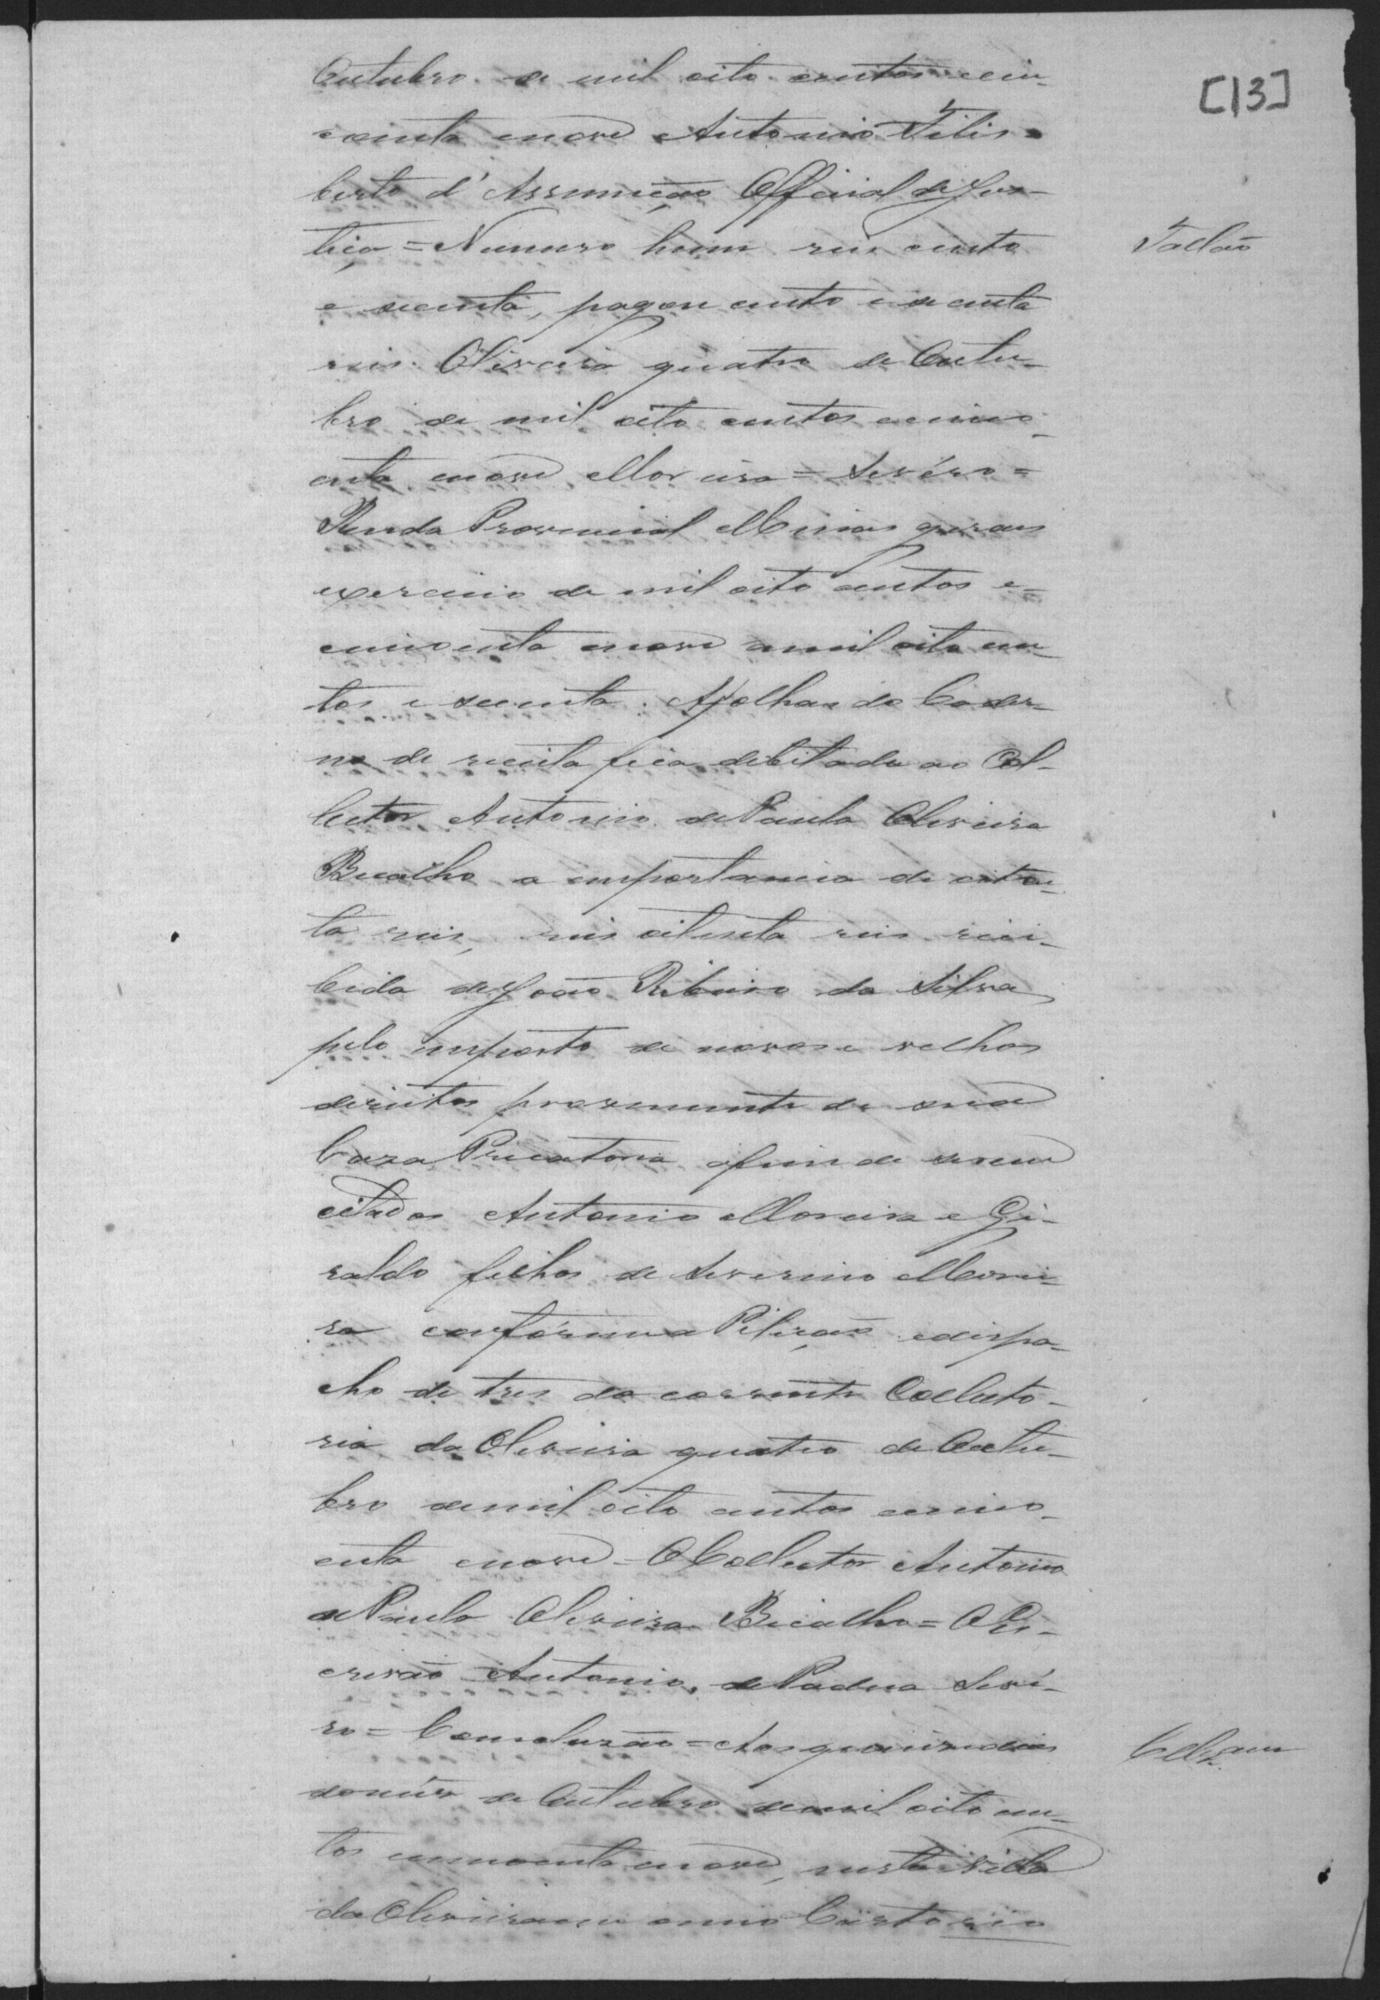 [13]
Outubro de mil oito centos e cin-
coenta e nove Antonio Felis-
berto d'Assumção Official de Jus-
tiça = Numero hum reis cento
Tallão
e secenta, pagou cento e secenta
reis. Oliveira quatro de Outu-
bro de mil oito centos e cinco-
enta e nove Moreira = Sevéro =
Renda Provincial Minas geraes
exercicio de mil oito centos e
cincoenta e nove a mil oito cen-
tos e secenta. Afolhas do Cader-
no de receita fica debitada ao Col-
lector Antonio de Paula Oliveira
Bicalho a importancia de oiten-
ta reis, reis oitenta reis rece-
bida de João Ribeiro da Silva
pelo imposto de novos e velhos
direitos provenientes de uma
Carta Precatoria afim de serem
citados Antonio Moreira e Gi-
raldo filhos de Severino Morei-
ra conforme a Petição e despa-
cho de tres do corrente Collecto-
ria da Oliveira quatro de Outu-
bro de mil oito centos e cinco-
enta e nove - O Collector Antonio
de Paula Oliveira Bicalho = O Es-
crivão Antonio de Padua Sevé-
ro = Comcluzão = Aos quinze dias
Clzam
do mez de Outubro de mil oito cen-
tos e cincoenta e nove, nesta Villa
da Oliveira em o meo Cartorio